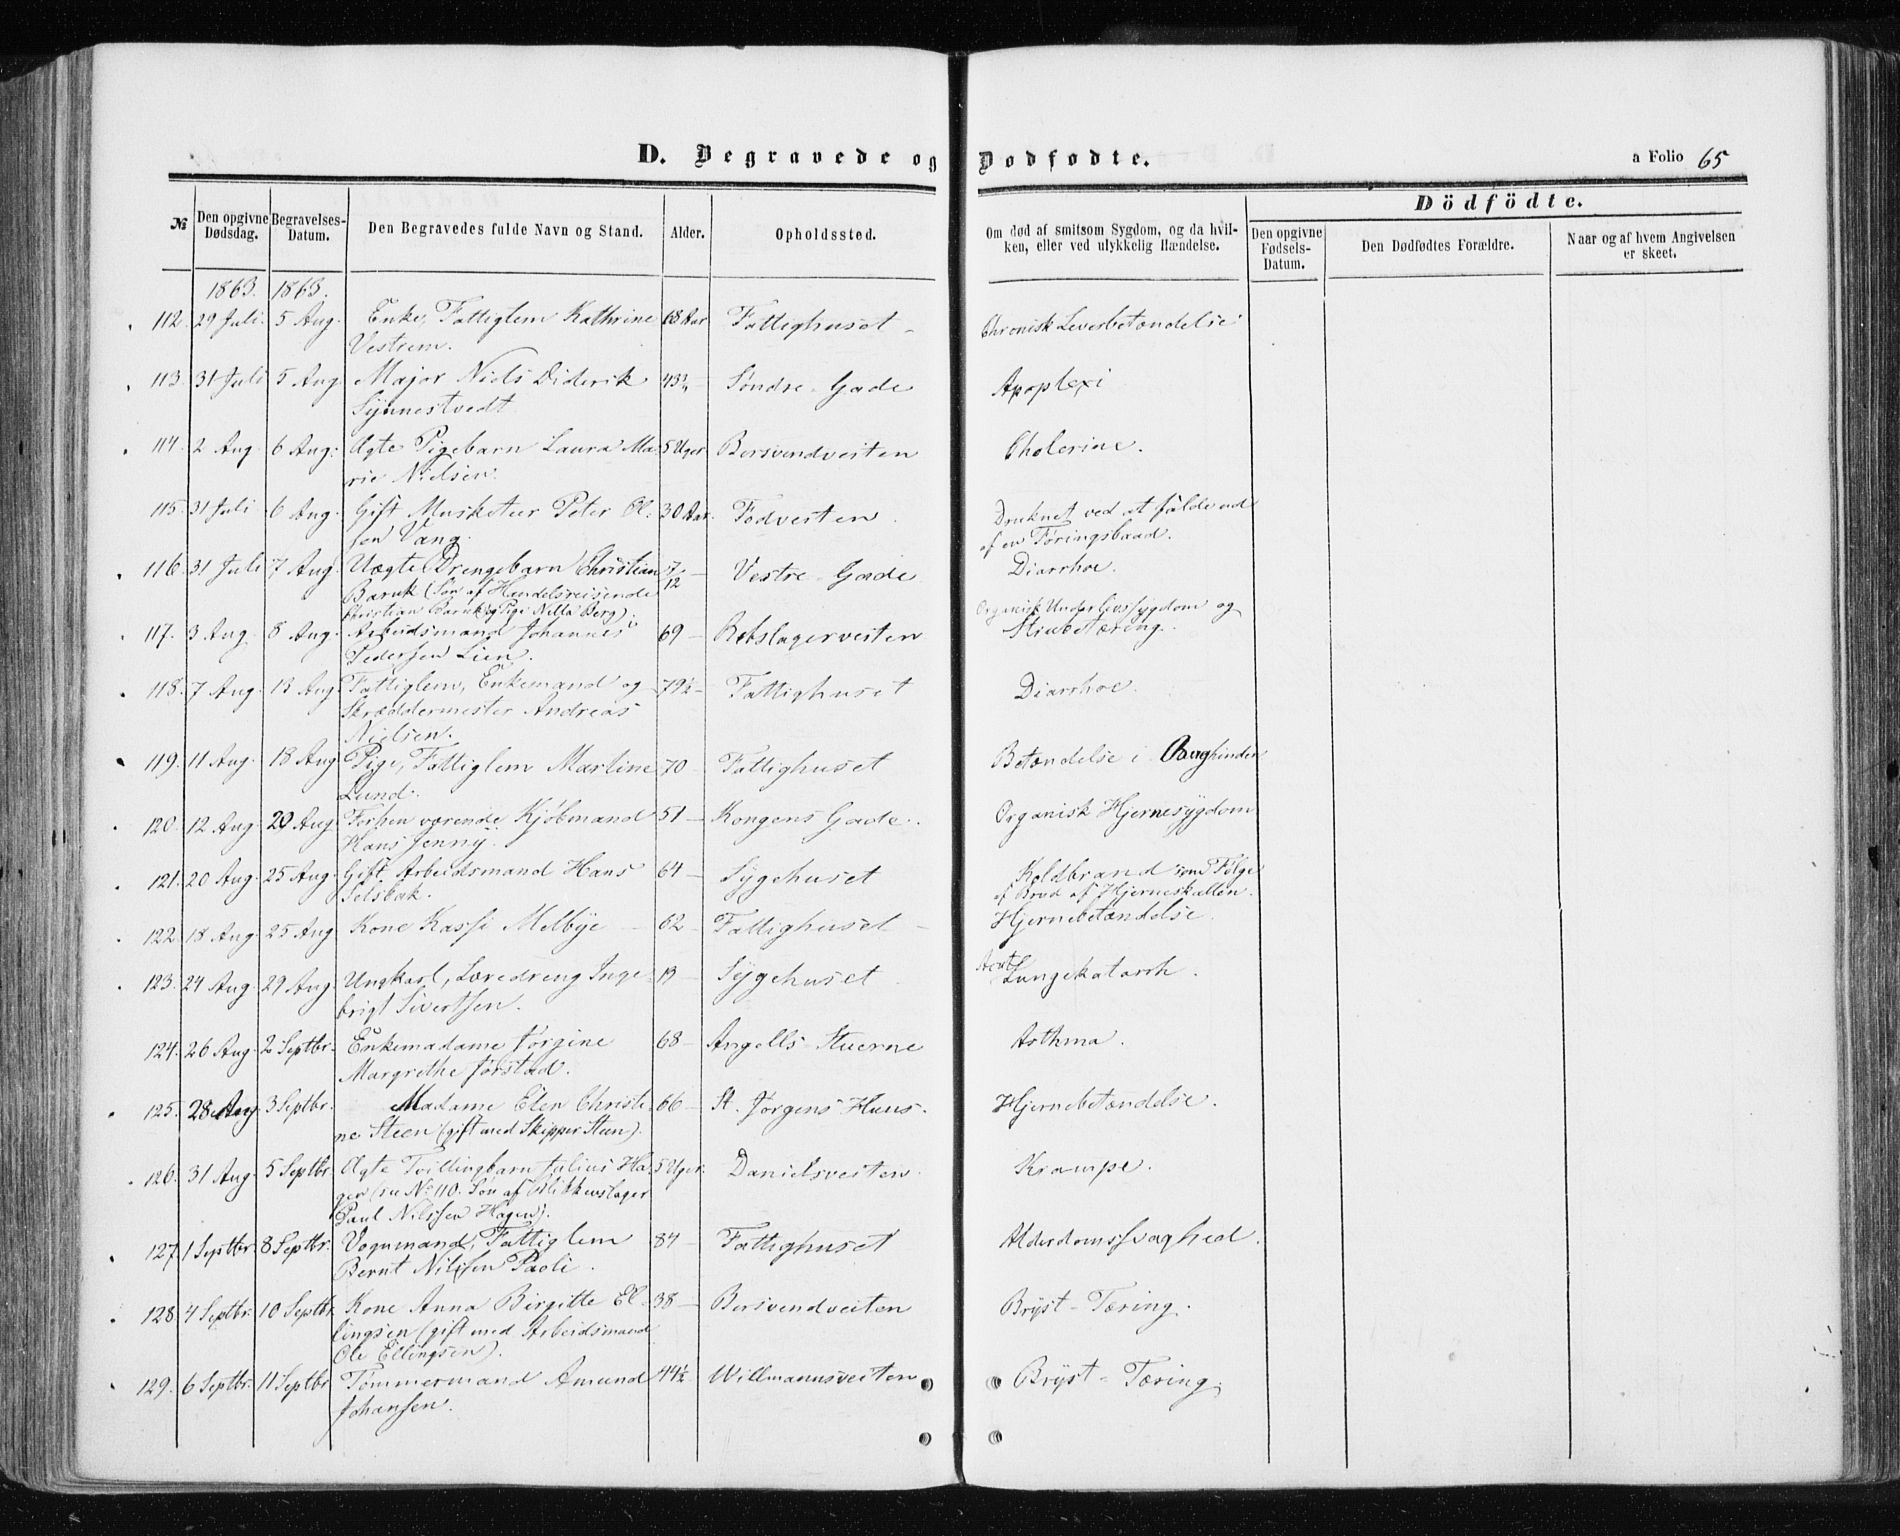 D. Begravede og Dødfødte.
a Folio 65
Dödfödte.
№
Den opgivne Dødsdag.
Begravelses-Datum.
Den Begravedes fulde Navn og Stand.
Alder.
Opholdssted.
Om død af smitsom Sygdom, og da hvilken, eller ved ulykkelig Hændelse.
Den opgivne Fødsels-Datum.
Den Dødfødtes Forældre.
Naar og af hvem Angivelsen er skeet.
1863. 1863.
112. 29 Juli. 5 Aug. Enke, Fattiglem Kathrine 68 Aar Fattighuset - Chronisk Leverbetændelse
Vestrem.
113. 31 Juli 5 Aug Major Niels Diderik 43¾ — Søndre-Gade Apoplexi
Synnestvedt
114. 2 Aug 6 Aug. Ægte Pigebarn Laura Ma- 5 Uger Borsvendveiten Cholerine.
rie Nielsen.
115. 31 Juli 6 Aug. Gift Musketeer Peter Ol- 30 Aar. Fodveiten Druknet ved at falde ud
sen Vang. af en Føringsbaad.
116. 31 Juli 7 Aug. Uægte Drengebarn Christian 7/12 — Vestre-Gade Diarrhoe.
Baruk (Søn af Handelsreisende
Christian Baruk og Pige Nilla Berg).
117. 3 Aug. 8 Aug. Arbeidsmand Johannes 69 — Rebslagerveiten Organisk Underlivssygdom og
Pedersen Lien.
118. 7 Aug. 13 Aug Fattiglem, Enkemand og 79½ — Fattighuset Diarrhoe.
Skræddermester Andreas
Nielsen.
119. 11 Aug. 18 Aug Pige, Fattiglem Martine 70 — Fattighuset Betændelse i Bughinden
Lund.
120. 12 Aug. 20 Aug. Forhen værende Kjøbmand 51 — Kongens Gade. Organisk Hjernesygdom
Hans Jenny.
121. 20 Aug. 25 Aug. Gift Arbeidsmand Hans 64 — Sygehuset Koldbrand som Følge
Selsbak. af Brud af Hjerneskallen.
122. 18 Aug. 25 Aug Kone Kassi Melbye — 62 — Fattighuset — Hjernebetændelse.
123. 24 Aug 29 Aug. Ungkarl, Læredreng Inge- 19 — Sygehuset Acut Lungekatarrh.
brigt Sivertsen.
124. 26 Aug. 2 Septbr. Enkemadame Jørgine 68 — Angells Stuerne Asthma.
Margrethe Jørstad.
125. 28 Aug 3 Septbr. Madame Elen Christi- 66 — St. Jørgens Huus. Hjernebetændelse.
ne Steen (gift med Skipper Steen).
126. 31 Aug. 5 Septbr Ægte Tvillingbarn Julius Ha- 5 Uger. Danielsveiten. Krampe.
gen (see No 110. Søn af Blikkenslager
Paul Nilssen Hagen).
127. 1 Septbr. 8 Septbr. Vognmand, Fattiglem 84 — Fattighuset Alderdomssvaghed.
Bernt Nilssen Paoli.
128. 4 Septbr. 10 Septbr. Kone Anna Birgitte El- 38 — Borsvendveiten Bryst-Tæring.
lingsen (gift med Arbeidsmand
Ole Ellingsen).
129. 6 Septbr. 11 Septbr Tømmermand Amund 44½ Willmannsveiten Bryst-Tæring.
Johansen.